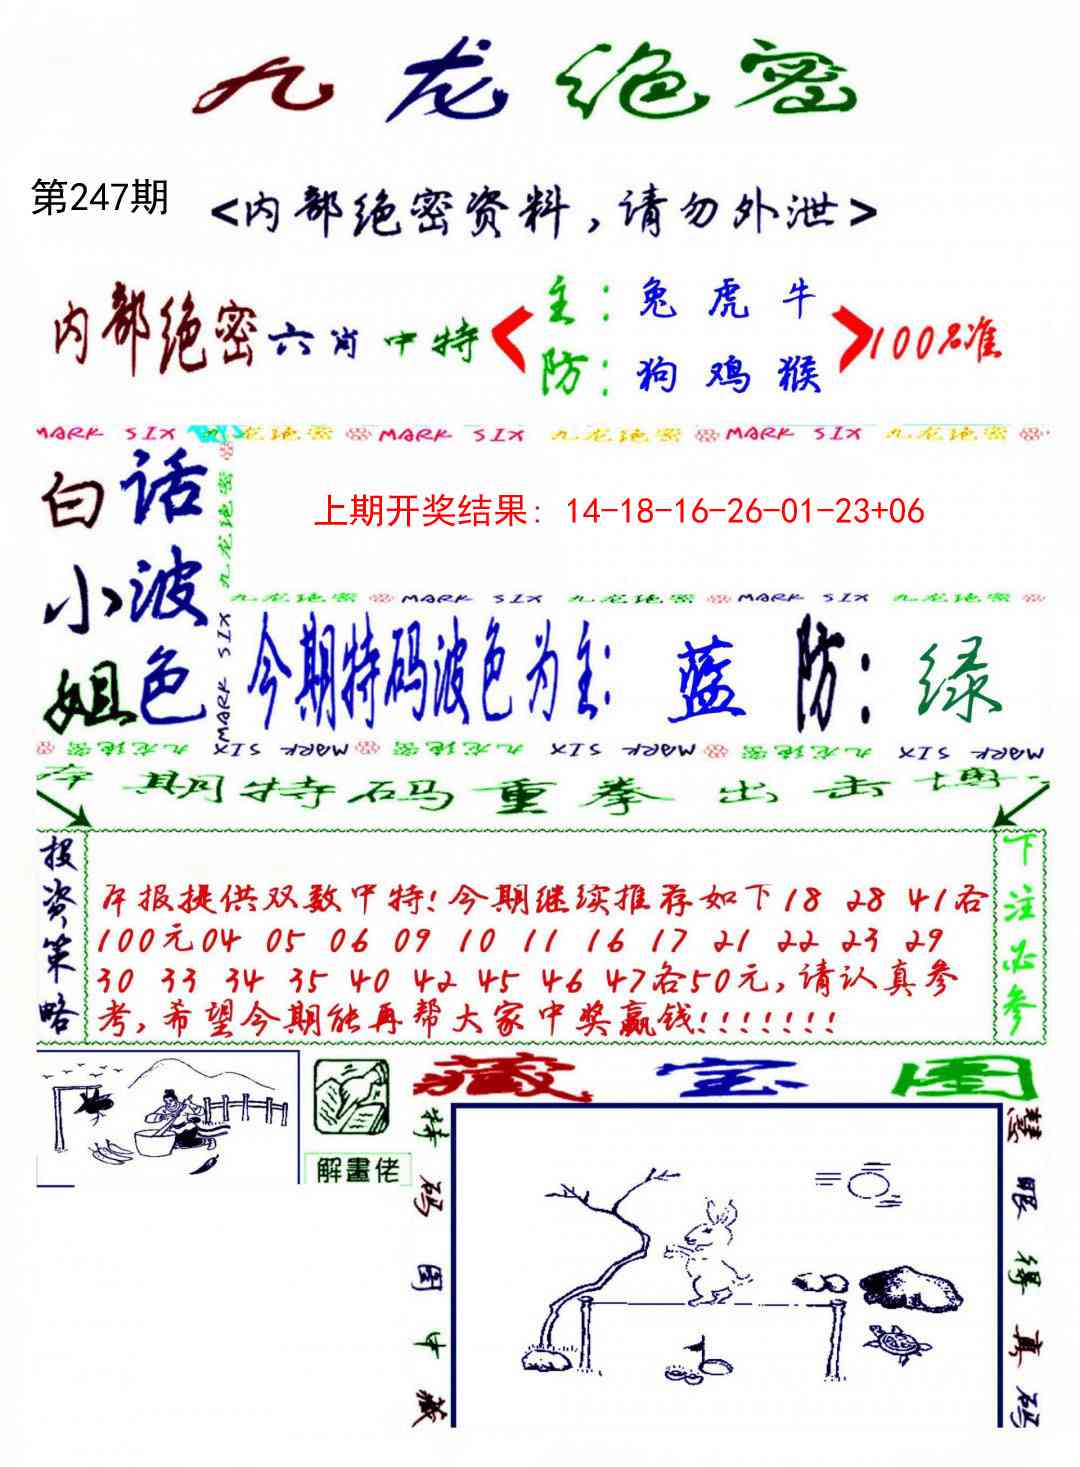 九龙绝密
第247期
<内部绝密资料,请勿外泄>
内部绝密六肖中特
主:兔虎牛
防:狗鸡猴
100%准
MARK SIX 九龙绝密 MARK SIX 九龙绝密 MARK SIX 九龙绝密
白小姐
话波色
九龙绝密
MARK SIX
上期开奖结果: 14-18-16-26-01-23+06
九龙绝密 MARK SIX 九龙绝密 MARK SIX 九龙绝密
今期特码波色为主: 蓝 防: 绿
九龙绝密 MARK SIX 九龙绝密 MARK SIX 九龙绝密 MARK SIX
本期特码重拳出击博
投资策略
本报提供双数中特!今期继续推荐如下18 28 41各
100元04 05 06 09 10 11 16 17 21 22 23 29
30 33 34 35 40 42 45 46 47各50元,请认真参
考,希望今期能再帮大家中奖赢钱!!!!!!!
下注必参
解畫佬
藏宝图
特码图中藏
慧眼得真码